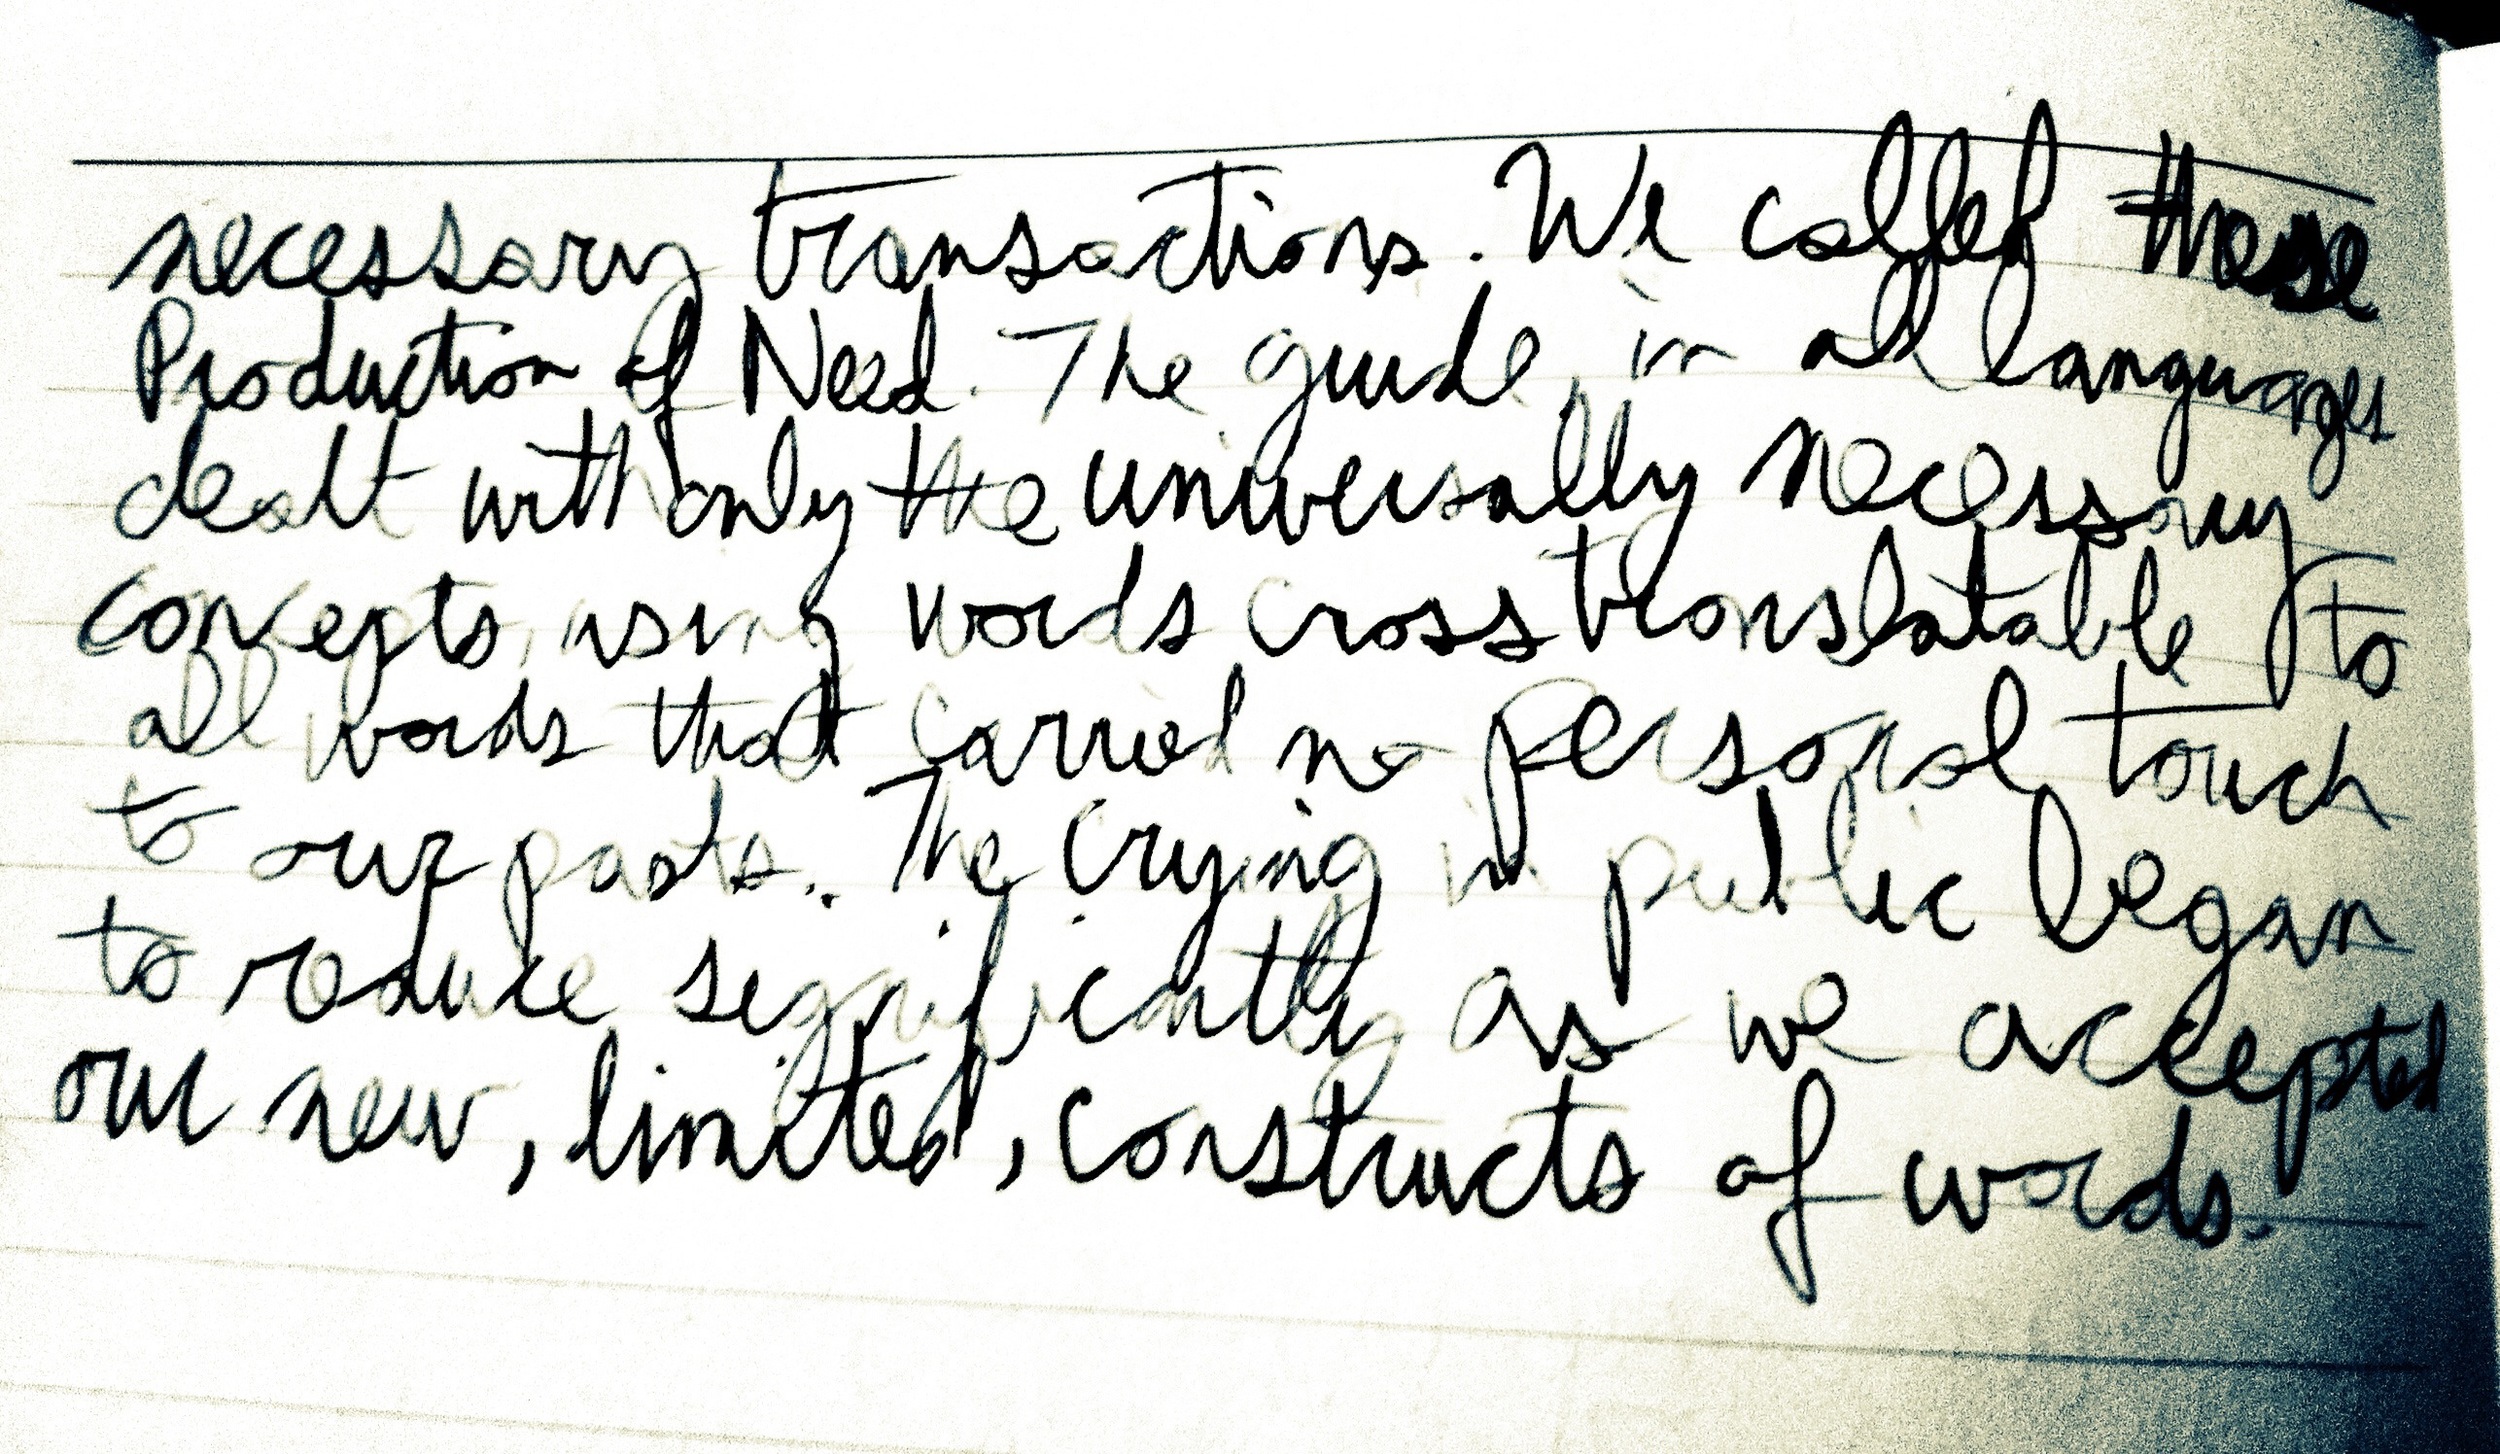 necessary transactions. We called these
Production of Need. The guide, in all languages
dealt with only the universally necessary
concepts, using words cross translatable to
all words that carried no personal touch
to our pasts. The crying in public began
to reduce significantly as we accepted
our new, limited, constructs of words.